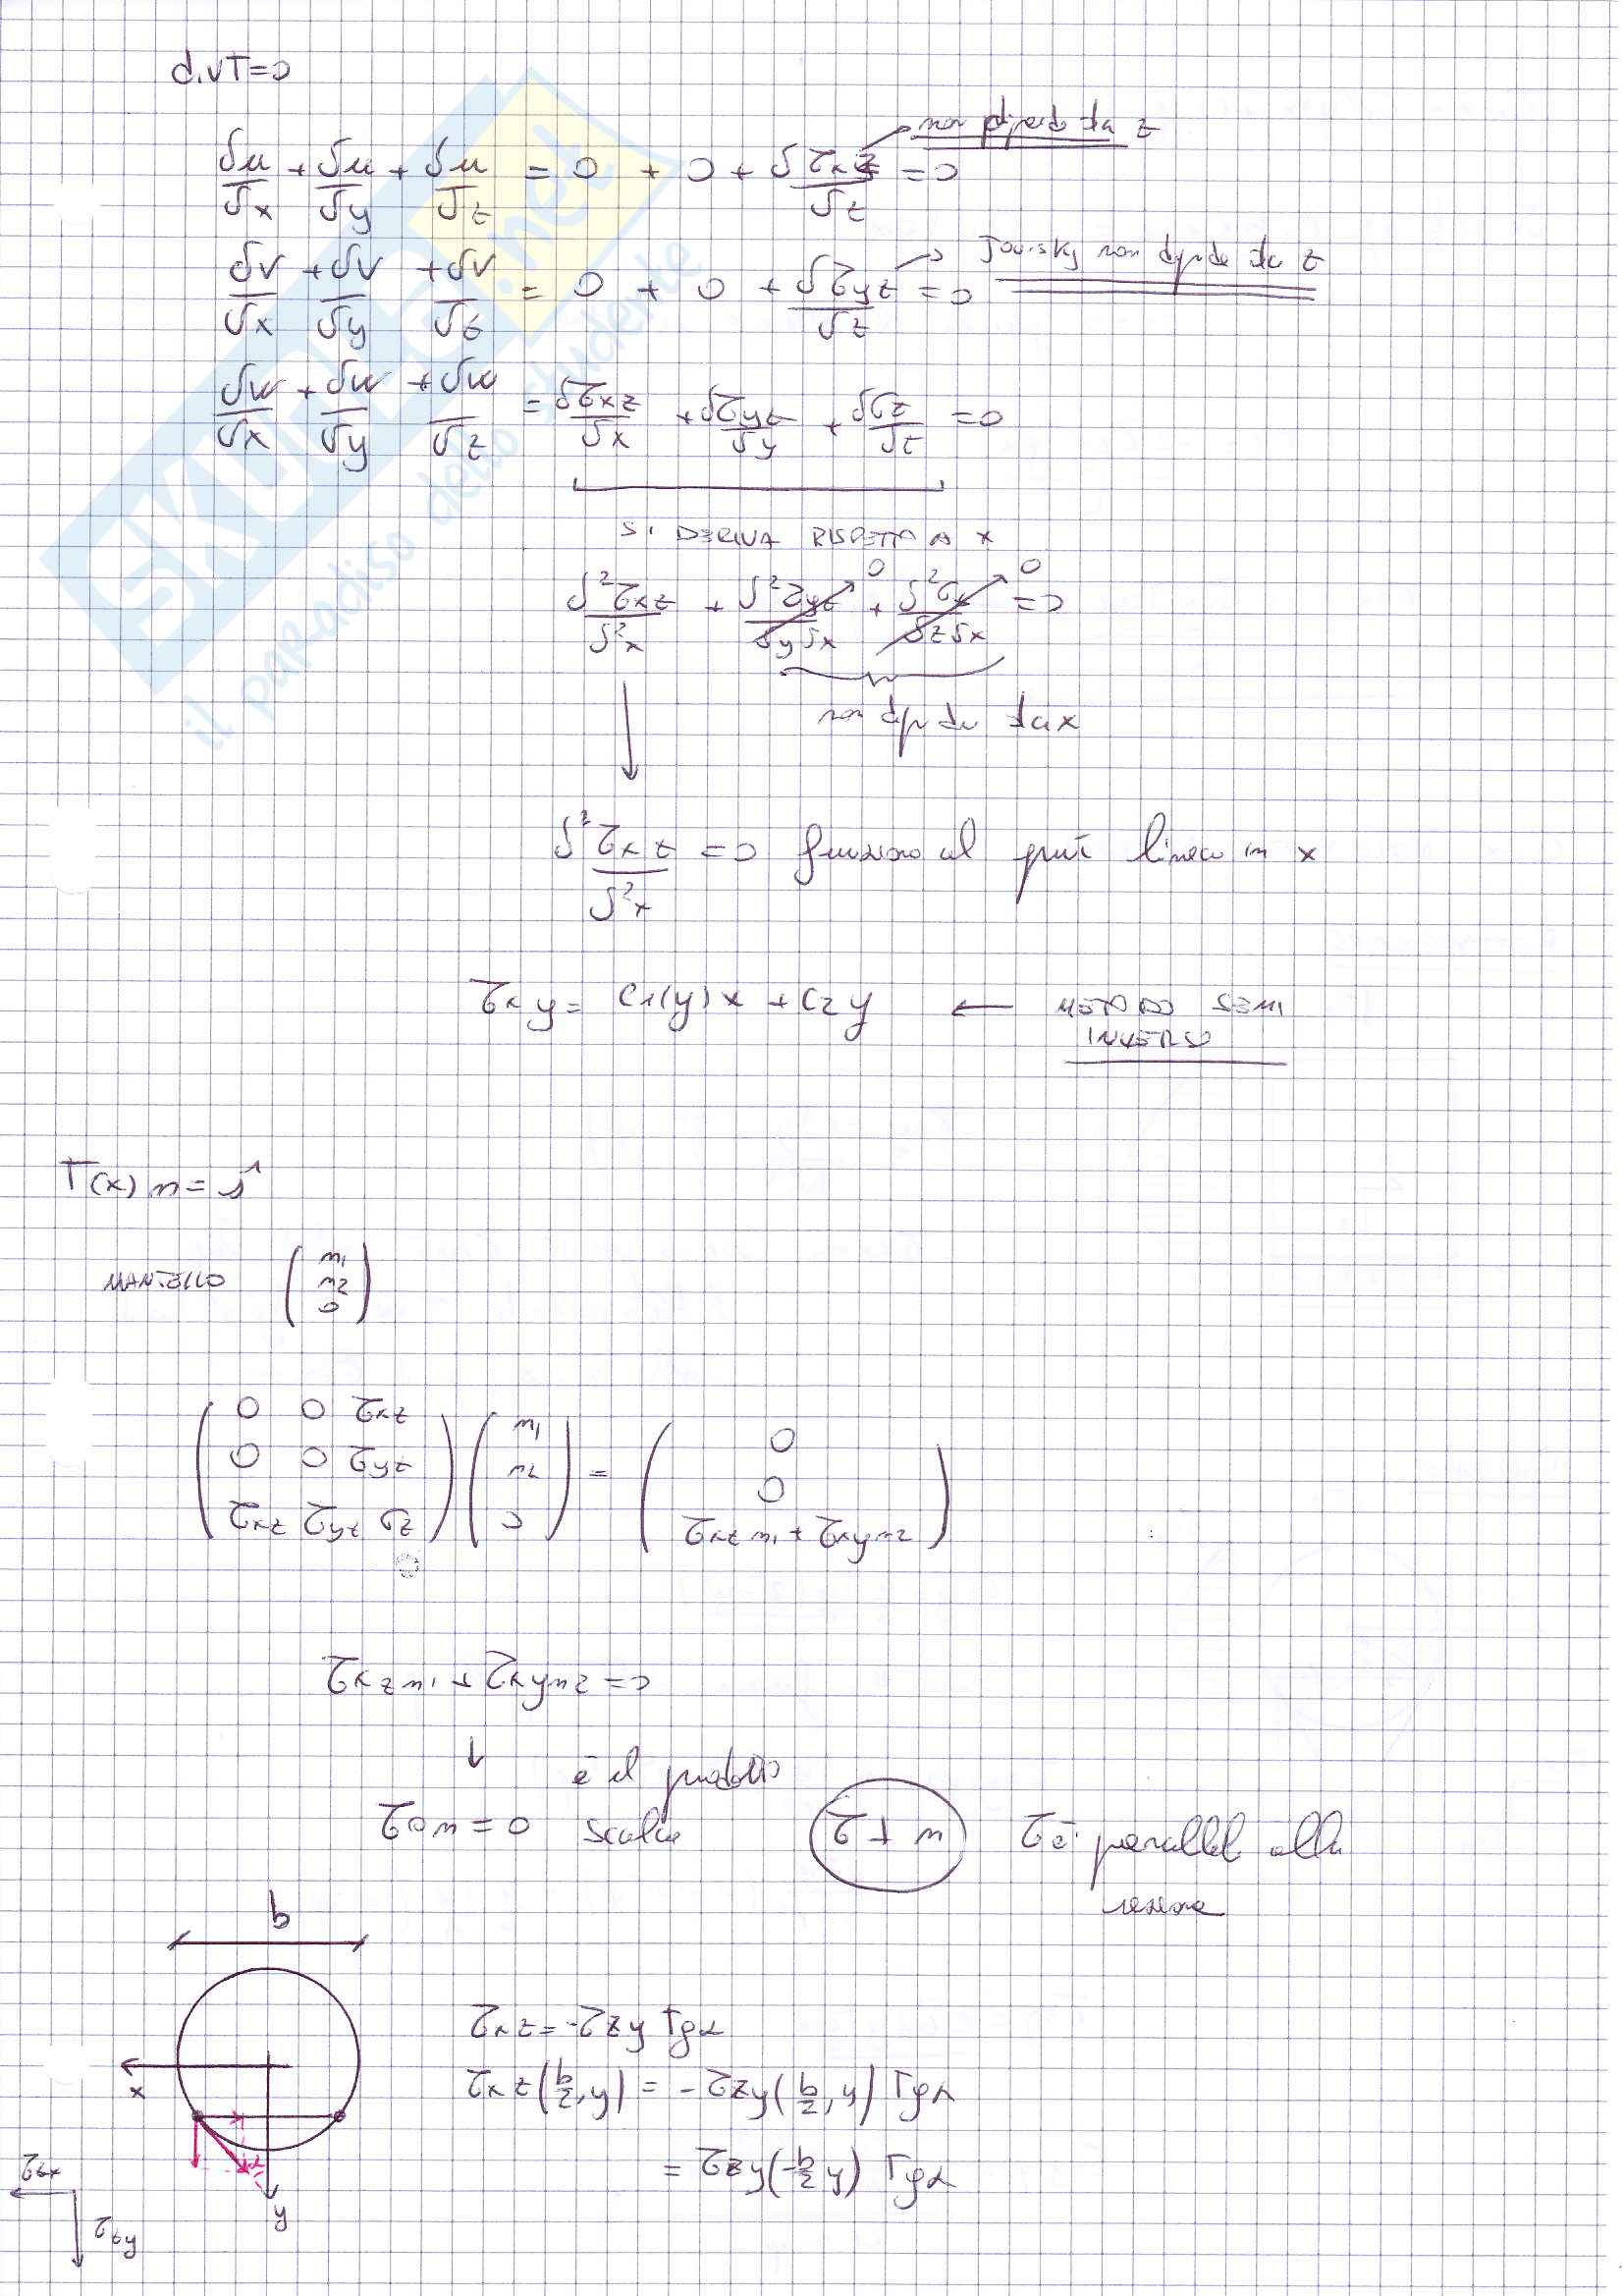 div T = 0
δu/δx + δu/δy + δu/δz = 0 + 0 + δτxz/δz = 0 → non dipende da z
δv/δx + δv/δy + δv/δz = 0 + 0 + δτyz/δz = 0 → Jourasky non dipende da z
δw/δx + δw/δy + δw/δz = δτxz/δx + δτyz/δy + δσz/δz = 0
SI DERIVA RISPETTO A x
δ²τxz/δ²x + δ²τyz/δyδx + δ²σz/δzδx = 0
0 0
non dipende da x
δ²τxz/δ²x = 0 funzione al più lineare in x
τxy = C1(y) x + C2 y ← METODO SEMI
INVERSO
T(x) n = ŝ
MANTELLO (n1 n2 0)
(0 0 τxz
0 0 τyz
τxz τyz σz) (n1 n2 0) = (0 0 τxz n1 + τxy n2)
τxz n1 + τxy n2 = 0
↓ è il prodotto
τ o n = 0 scalare τ ⊥ n τ è parallela alla
sezione
b
τxz = -τzy Tgα
x
τxz(b/2, y) = -τzy(b/2, y) Tgα
= τzy(-b/2 y) Tgα
α
y
τzx
τzy
SKUOLA.net
il paradiso dello studente